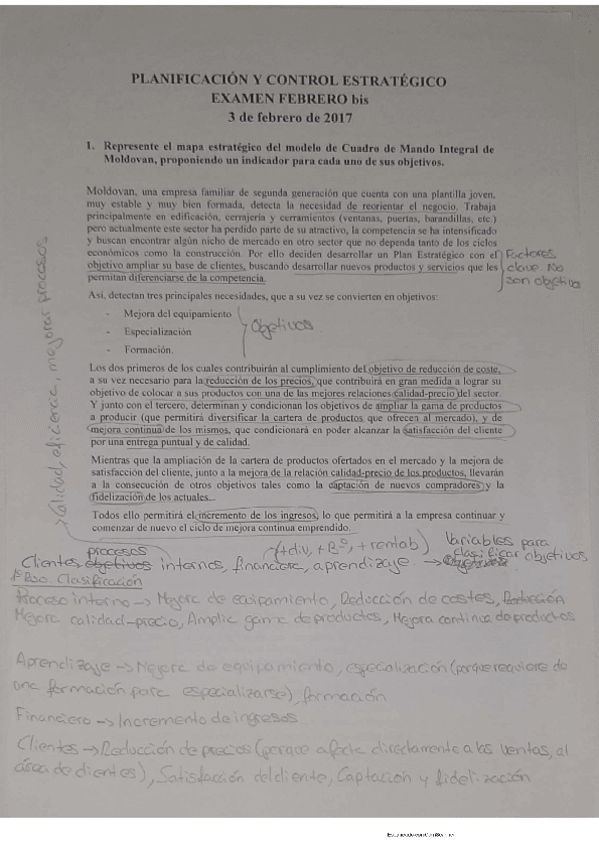 PLANIFICACIÓN Y CONTROL ESTRATÉGICO
EXAMEN FEBRERO bis
3 de febrero de 2017
1. Represente el mapa estratégico del modelo de Cuadro de Mando Integral de
Moldovan, proponiendo un indicador para cada uno de sus objetivos.
Moldovan, una empresa familiar de segunda generación que cuenta con una plantilla joven,
muy estable y muy bien formada, detecta la necesidad de reorientar el negocio. Trabaja
principalmente en edificación, cerrajería y cerramientos (ventanas, puertas, barandillas, etc.)
pero actualmente este sector ha perdido parte de su atractivo, la competencia se ha intensificado
y buscan encontrar algún nicho de mercado en otro sector que no dependa tanto de los ciclos
económicos como la construcción. Por ello deciden desarrollar un Plan Estratégico con el
objetivo ampliar su base de clientes, buscando desarrollar nuevos productos y servicios que les
permitan diferenciarse de la competencia.
Factores
clave. No
son objetivo
Así, detectan tres principales necesidades, que a su vez se convierten en objetivos:
- Mejora del equipamiento
- Especialización
- Formación.
Objetivos
Los dos primeros de los cuales contribuirán al cumplimiento del objetivo de reducción de coste,
a su vez necesario para la reducción de los precios, que contribuirá en gran medida a lograr su
objetivo de colocar a sus productos con una de las mejores relaciones calidad-precio del sector.
Y junto con el tercero, determinan y condicionan los objetivos de ampliar la gama de productos
a producir (que permitirá diversificar la cartera de productos que ofrecen al mercado), y de
mejora continua de los mismos, que condicionará en poder alcanzar la satisfacción del cliente
por una entrega puntual y de calidad.
Mientras que la ampliación de la cartera de productos ofertados en el mercado y la mejora de
satisfacción del cliente, junto a la mejora de la relación calidad-precio de los productos, llevarán
a la consecución de otros objetivos tales como la captación de nuevos compradores y la
fidelización de los actuales...
Todo ello permitirá el incremento de los ingresos, lo que permitirá a la empresa continuar y
comenzar de nuevo el ciclo de mejora continua emprendido.
Calidad, eficiencia, mejorar procesos
procesos
(+div, +Bº, + rentab)
Variables para
clasificar objetivos
Clientes objetivos internos, financiera, aprendizaje. → objetivos
1º Paso. Clasificación
Proceso interno → Mejora de equipamiento, Reducción de costes, Reducción
Mejora calidad-precio, Amplia gama de productos, Mejora continua de productos
Aprendizaje → Mejora de equipamiento, especialización (porque requiere de
una formación para especializarse), formación
Financiero → Incremento de ingresos
Clientes → Reducción de precios (porque afecta directamente a las ventas, al
área de clientes), Satisfacción del cliente, Captación y fidelización